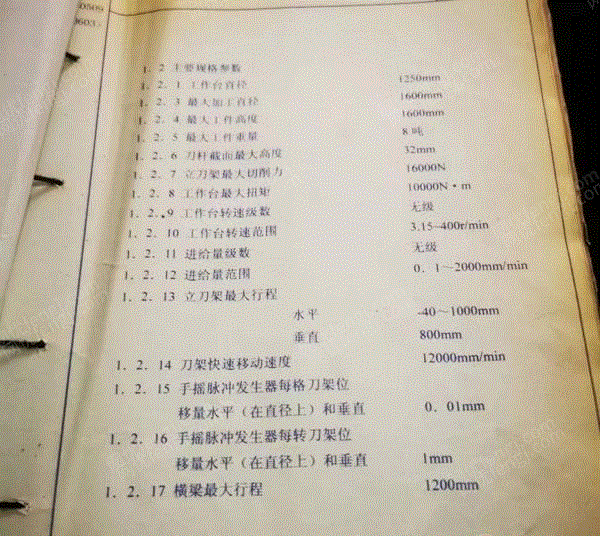 0509
0603
1. 2 主要规格参数
1. 2. 1 工作台直径 1250mm
1. 2. 3 最大加工直径 1600mm
1. 2. 4 最大工件高度 1600mm
1. 2. 5 最大工件重量 8 吨
1. 2. 6 刀杆截面最大高度 32mm
1. 2. 7 立刀架最大切削力 16000N
1. 2. 8 工作台最大扭矩 10000N·m
1. 2. 9 工作台转速级数 无级
1. 2. 10 工作台转速范围 3.15-400r/min
1. 2. 11 进给量级数 无级
1. 2. 12 进给量范围 0. 1~2000mm/min
1. 2. 13 立刀架最大行程
水平 -40~1000mm
垂直 800mm
1. 2. 14 刀架快速移动速度 12000mm/min
1. 2. 15 手摇脉冲发生器每格刀架位
移量水平（在直径上）和垂直 0. 01mm
1. 2. 16 手摇脉冲发生器每转刀架位
移量水平（在直径上）和垂直 1mm
1. 2. 17 横梁最大行程 1200mm